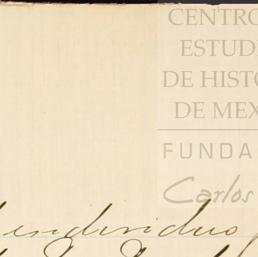 CENTRO
ESTUDI
DE HISTO
DE MEX
FUNDA
Carlos
individuo